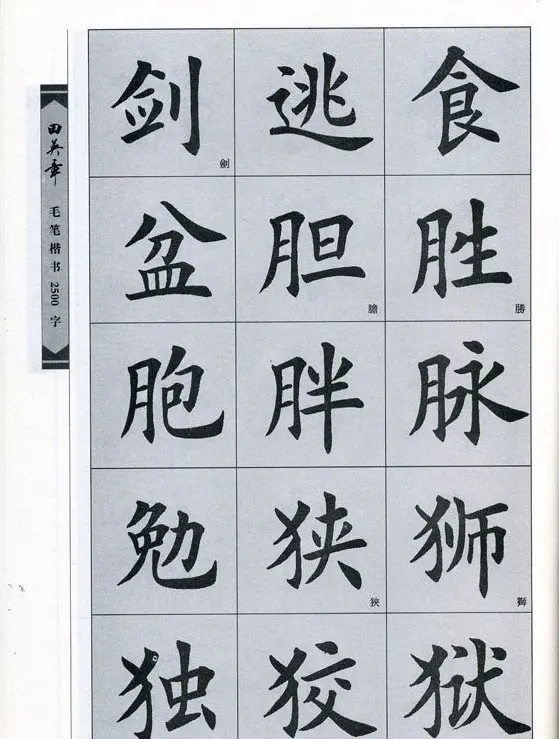 田英章 毛笔楷书 2500 字
剑 劍 逃 食
盆 胆 膽 胜 勝
胞 胖 脉
勉 狭 狹 狮 獅
独 狡 狱